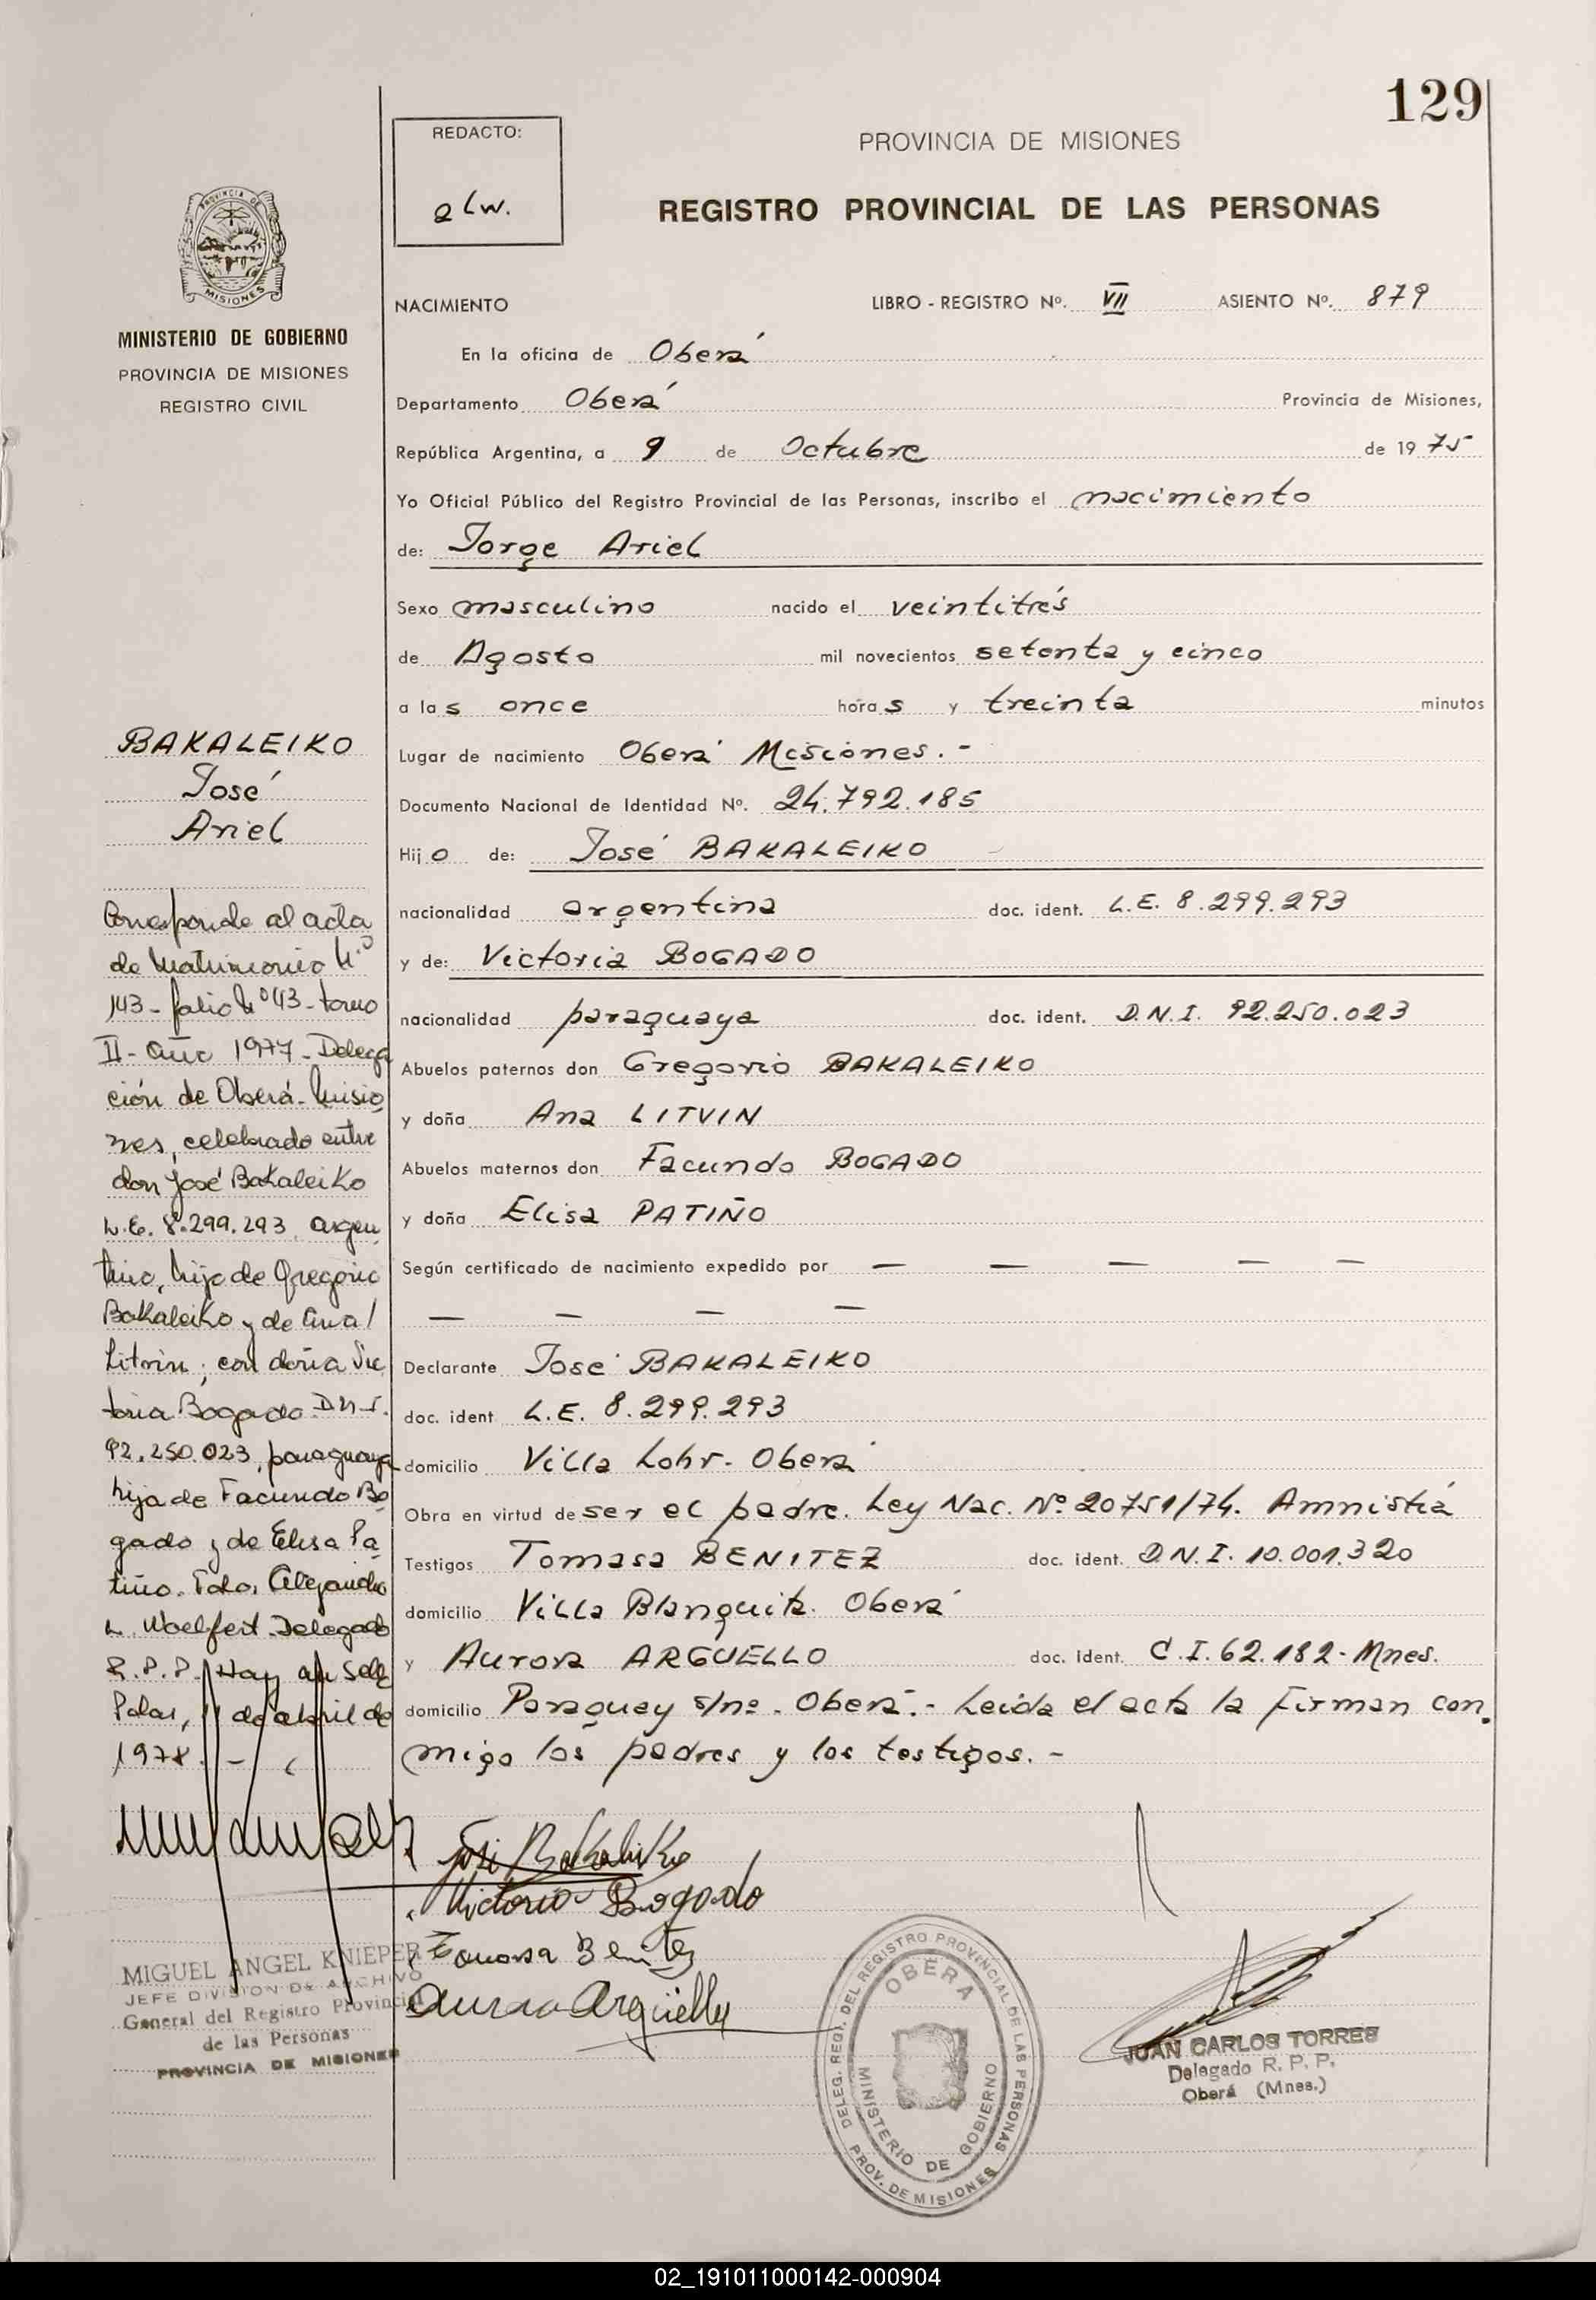 129
REDACTO:
PROVINCIA DE MISIONES
REGISTRO PROVINCIAL DE LAS PERSONAS
PROVINCIA DE
MISIONES
MINISTERIO DE GOBIERNO
PROVINCIA DE MISIONES
REGISTRO CIVIL
NACIMIENTO LIBRO - REGISTRO Nº. VII ASIENTO Nº. 879
En la oficina de Oberá
Departamento Oberá Provincia de Misiones,
República Argentina, a 9 de Octubre de 1975
Yo Oficial Público del Registro Provincial de las Personas, inscribo el nacimiento
de: Jorge Ariel
Sexo masculino nacido el veintitrés
de Agosto mil novecientos setenta y cinco
a las once horas y treinta minutos
Lugar de nacimiento Oberá Misiones.-
Documento Nacional de Identidad Nº. 24.792.185
Hijo de: José BAKALEIKO
nacionalidad argentina doc. ident. L.E. 8.299.293
y de: Victoria BOGADO
nacionalidad paraguaya doc. ident. D.N.I. 92.250.023
Abuelos paternos don Gregorio BAKALEIKO
y doña Ana LITVIN
Abuelos maternos don Facundo BOGADO
y doña Elisa PATIÑO
Según certificado de nacimiento expedido por — — — — —
— — — —
Declarante José BAKALEIKO
doc. ident L.E. 8.299.293
domicilio Villa Lohr. Oberá
Obra en virtud de ser el padre. Ley Nac. Nº 20751/74. Amnistía
Testigos Tomasa BENITEZ doc. ident. D.N.I. 10.001.320
domicilio Villa Blanquita. Oberá
y Aurora ARGÜELLO doc. ident. C.I. 62.182-Mnes.
domicilio Paraguay s/nº. Oberá.- Leída el acta la firman con
migo los padres y los testigos.-
BAKALEIKO
José
Ariel
Corresponde al acta
de Matrimonio Nº
143- folio Nº 43- tomo
II- Año 1977- Delega
ción de Oberá- Misio
nes, celebrado entre
don José Bakaleiko
L.E. 8.299.293, argen
tino, hijo de Gregorio
Bakaleiko y de Ana/
Litvin; con doña Vic
toria Bogado D.N.I.
92.250.023, paraguaya
hija de Facundo Bo
gado y de Elisa Pa
tiño. Fdo. Alejandro
L. Woelfert. Delegado
R.P.P. Hay un Sello
Posadas, 11 de abril de
1978.-
José Bakaleiko
Victoria Bogado
Tomasa Benitez
Aurora Argüello
MIGUEL ANGEL KNIEPER
JEFE DIVISION DE ARCHIVO
General del Registro Provincial
de las Personas
PROVINCIA DE MISIONES
DELEG. REGI. DEL REGISTRO PROVINCIAL DE LAS PERSONAS
OBERA
MINISTERIO DE GOBIERNO
PROV. DE MISIONES
JUAN CARLOS TORRES
Delegado R. P. P.
Oberá (Mnes.)
02_191011000142-000904